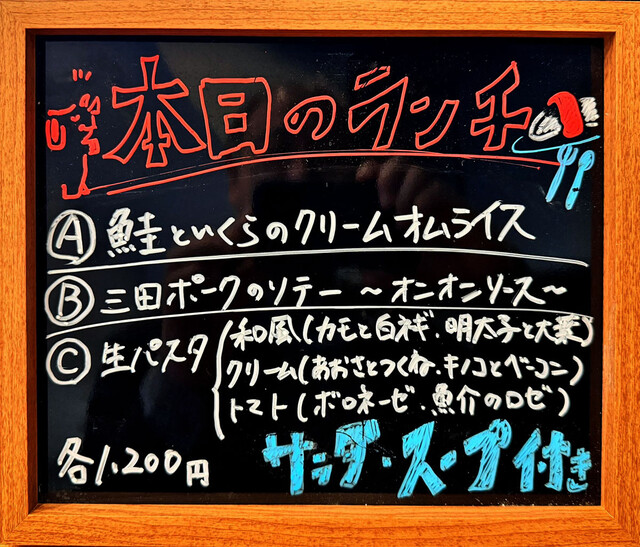 本日のランチ
Ⓐ 鮭といくらのクリームオムライス
Ⓑ 三田ポークのソテー ～オニオンソース～
Ⓒ 生パスタ
和風(カモと白ネギ・明太子と大葉)
クリーム(あおさとつくね・キノコとベーコン)
トマト(ボロネーゼ・魚介のロゼ)
各1,200円
サラダ・スープ付き